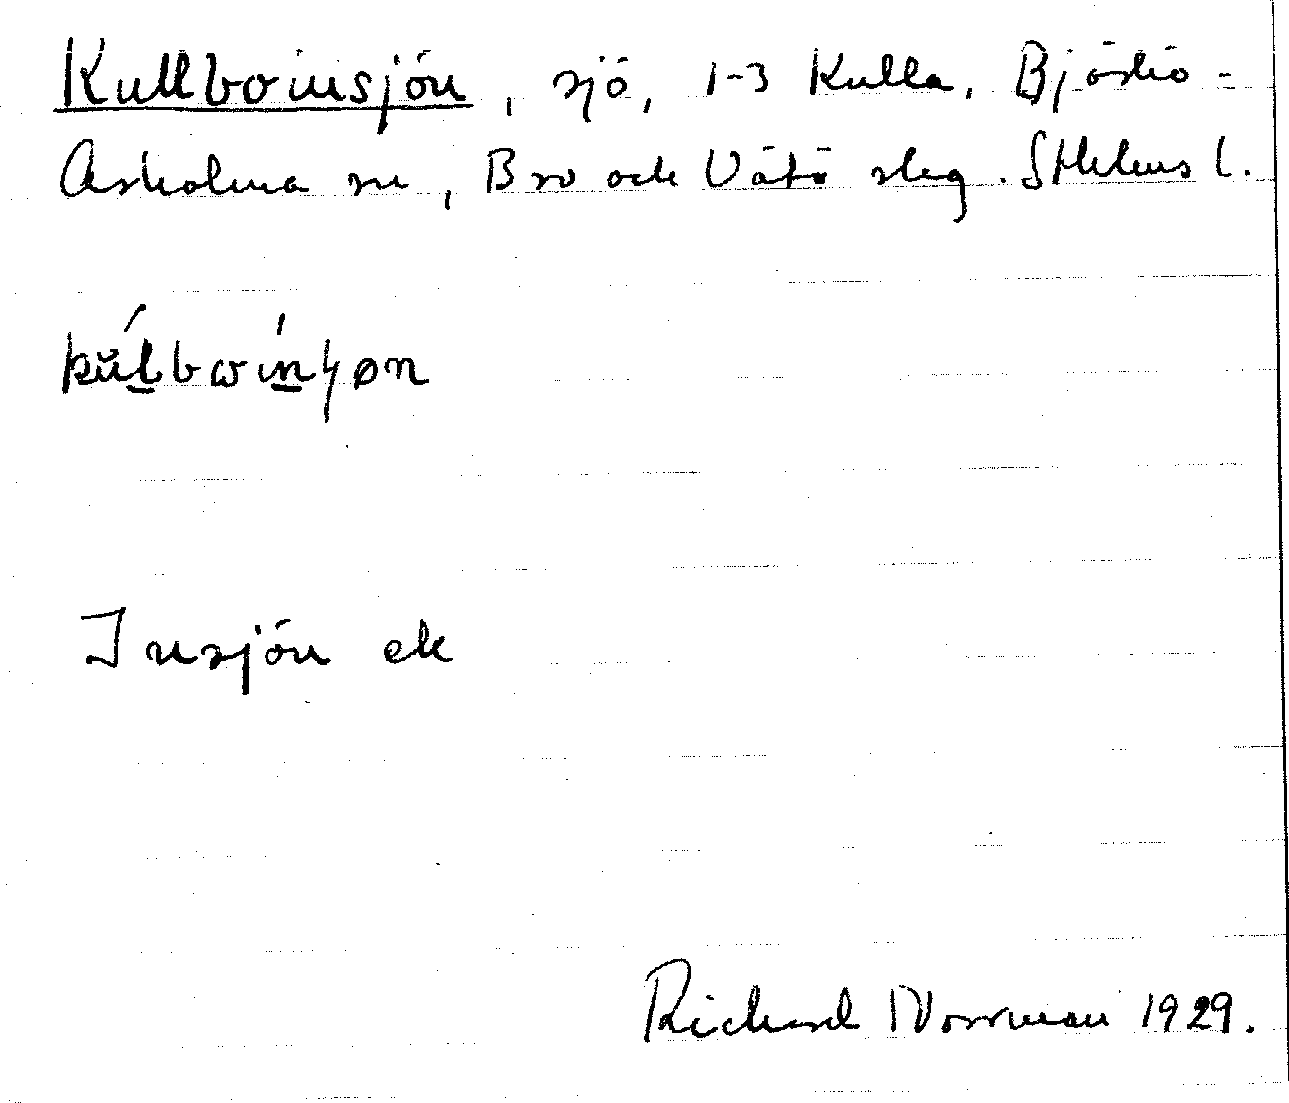 Kullboinsjön, sjö, 1-3 Kulla, Björkö-
Arholma sn, Bro och Vätö slag. Sthlms l.
kŭ́lbωi̇́nɧøn
Insjön ek
Richard Norrman 1929.